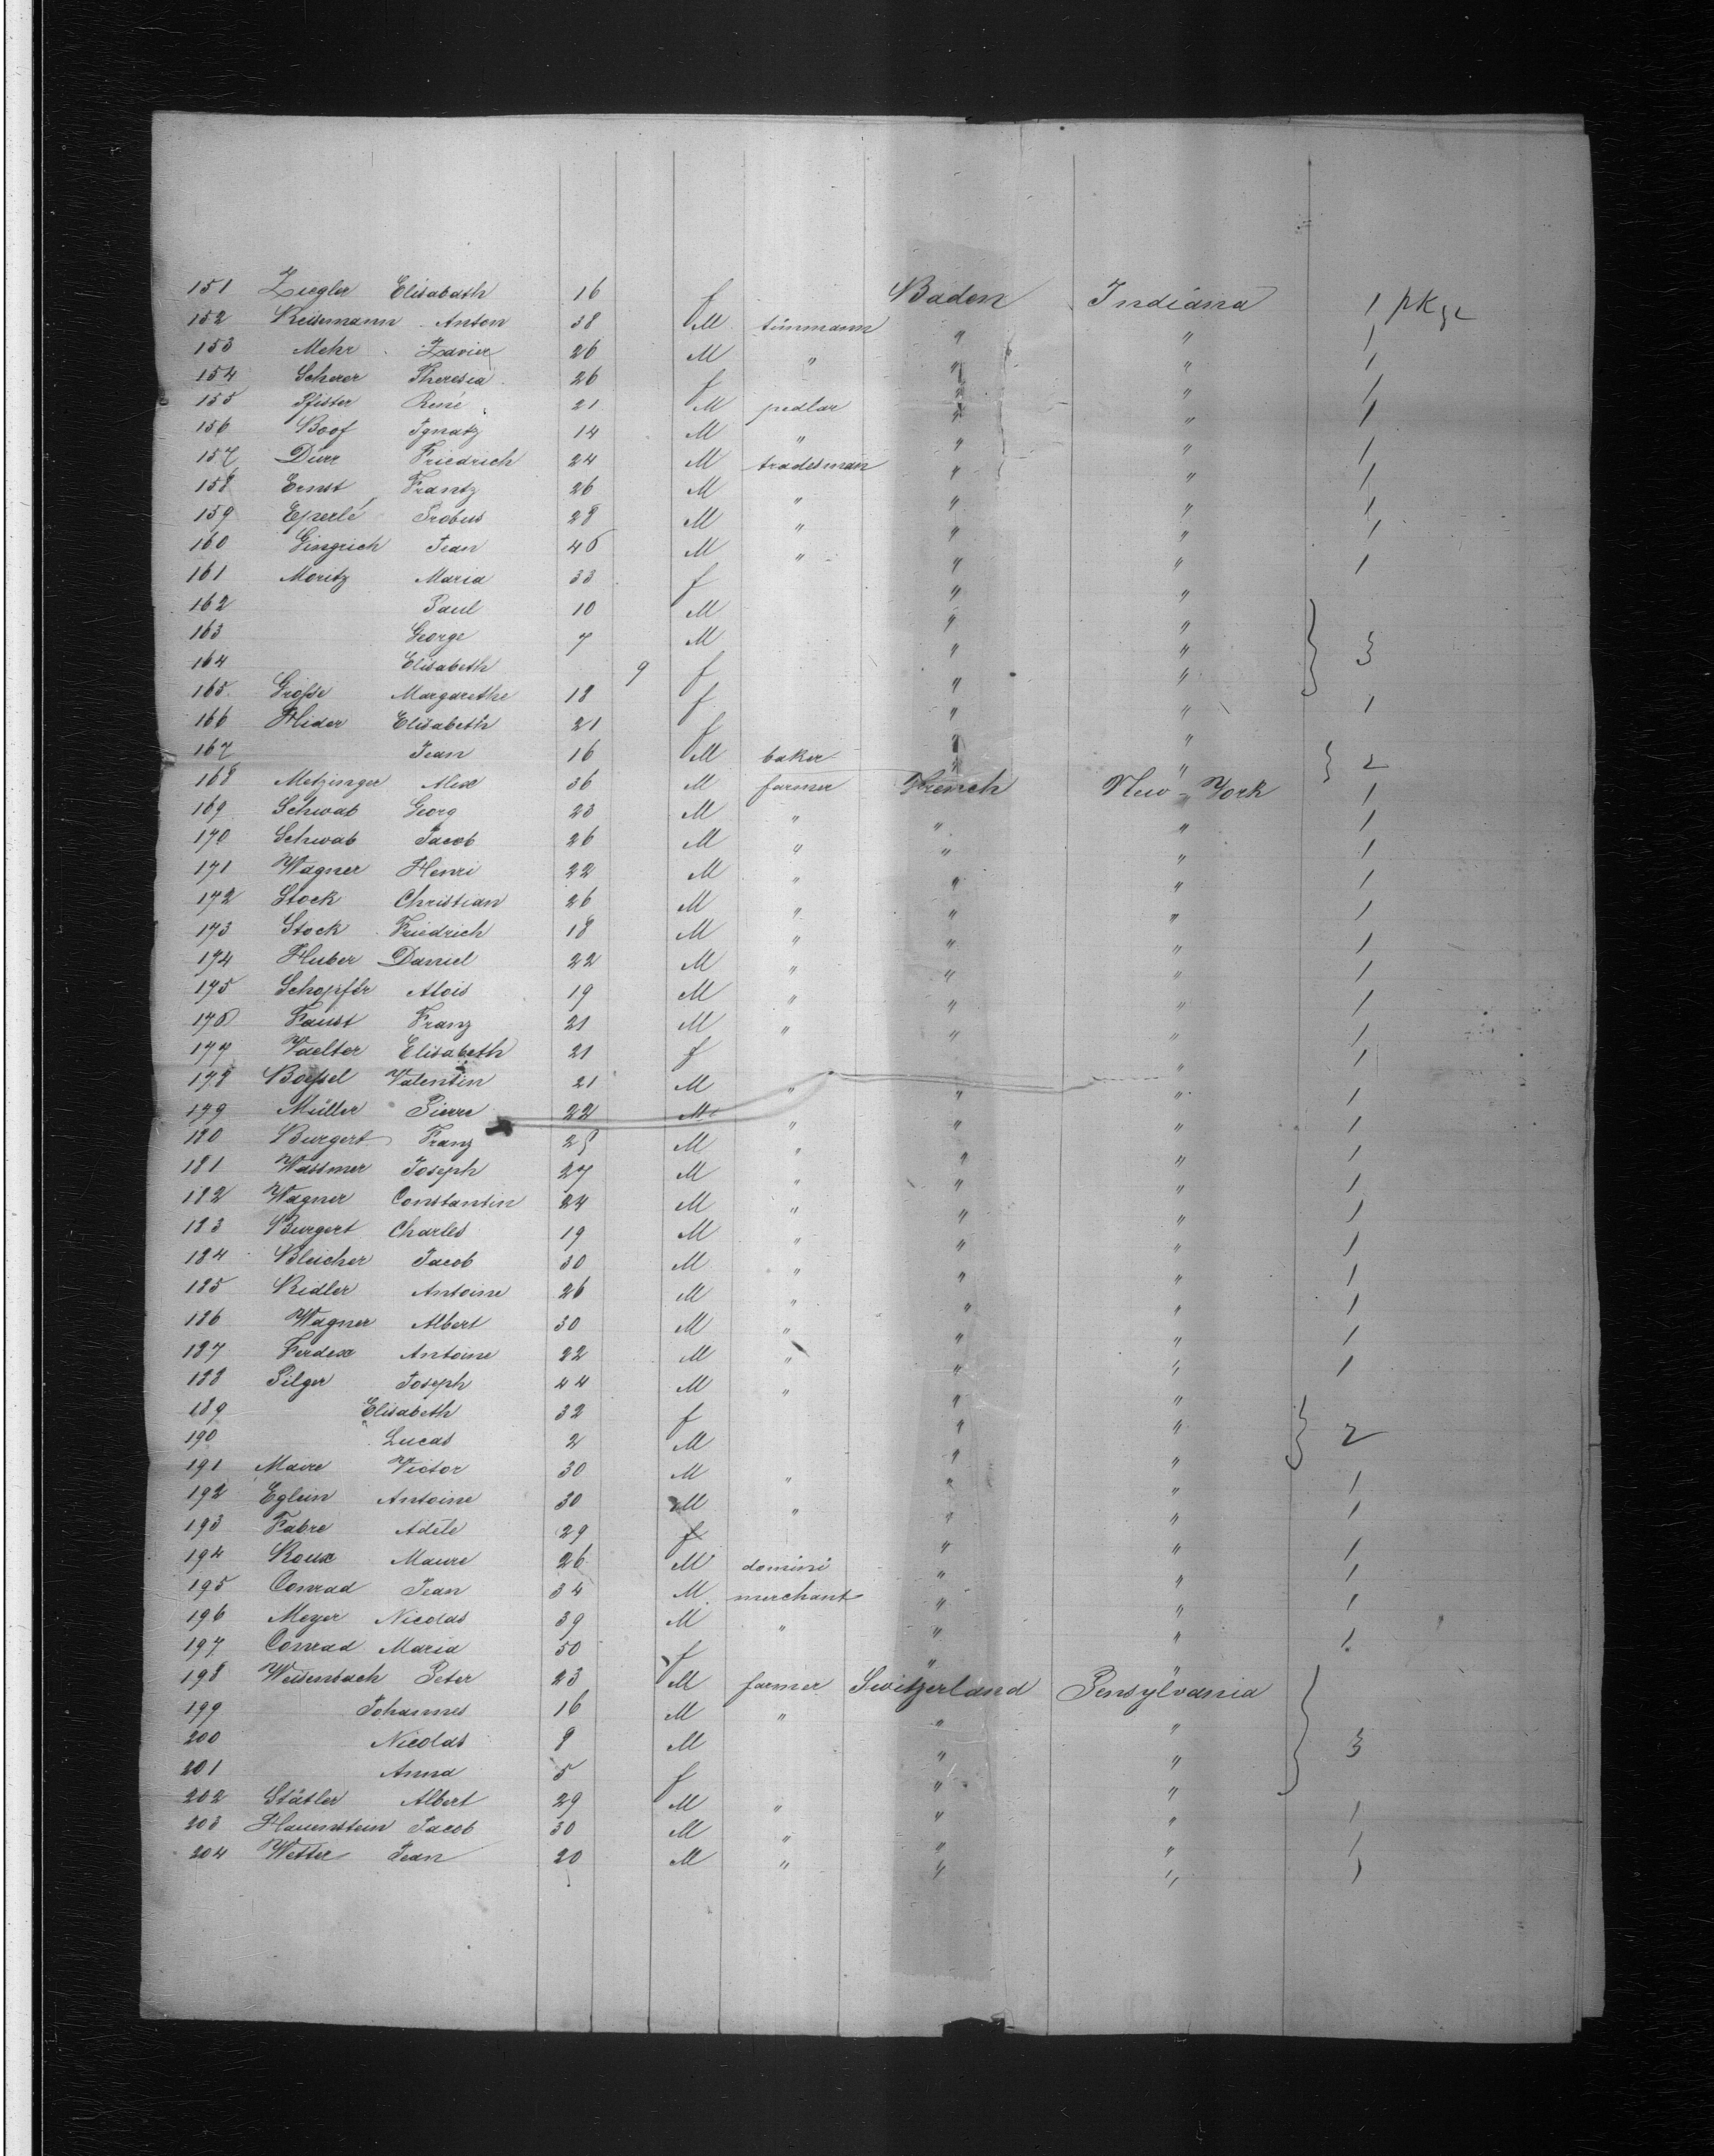 151 Ziegler Elisabath 16 f Baden Indiana 1 pkge
152 Reisemann Anton 38 M tinnmann " " 1
153 Mehr Xavier 26 M " " " 1
154 Scherer Theresia 26 f " " 1
155 Pfister René 21 M pedlar " " 1
156 Boof Ignatz 14 M " " " 1
157 Dürr Friedrich 24 M tradesman " " 1
158 Ernst Frantz 26 M " " " 1
159 Eperlé Probus 28 M " " " 1
160 Gingrich Jean 46 M " " " 1
161 Moritz Maria 33 f " "
162 Paul 10 M " "
163 George 7 M " " 3
164 Elisabeth 9 f " "
165 Große Margarethe 18 f " " 1
166 Hider Elisabeth 21 f " "
167 Jean 16 M baker " " 2
168 Metzinger Alex 36 M farmer French New-York 1
169 Schwab Georg 23 M " " " 1
170 Schwab Jacob 26 M " " " 1
171 Wagner Henri 22 M " " " 1
172 Stock Christian 26 M " " " 1
173 Stock Friedrich 18 M " " " 1
174 Huber Daniel 22 M " " " 1
175 Schopfér Alois 19 M " " " 1
176 Faust Franz 21 M " " " 1
177 Vaelter Elisabeth 21 f " 1
178 Boeßel Valentin 21 M " " " 1
179 Müller Pierre 22 M " " " 1
180 Burgert Franz M " " " 1
181 Wassmer Joseph 27 M " " " 1
182 Wagner Constantin 24 M " " " 1
183 Burgert Charles 19 M " " " 1
184 Bleicher Jacob 30 M " " " 1
185 Ridler Antoine 26 M " " " 1
186 Wagner Albert 30 M " " " 1
187 Ferdex Antoine 22 M " " " 1
188 Pilger Joseph 44 M " " "
189 Elisabeth 32 f " " 2
190 Lucas 2 M " "
191 Maire Victor 30 M " " " 1
192 Eglein Antoine 30 M " " " 1
193 Fabre Adéle 29 f " " 1
194 Roux Maure 26 M domini " " 1
195 Conrad Jean 34 M merchant " " 1
196 Meyer Nicolas 39 M " " " 1
197 Conrad Maria 50 f " "
198 Weisenbach Peter 23 M farmer Switzerland Pensylvania
199 Johannes 16 M " " "
200 Nicolas 8 M " " 3
201 Anna 5 f " "
202 Stätler Albert 29 M " " " 1
203 Hauenstein Jacob 30 M " " " 1
204 Wetter Jean 20 M " " " 1